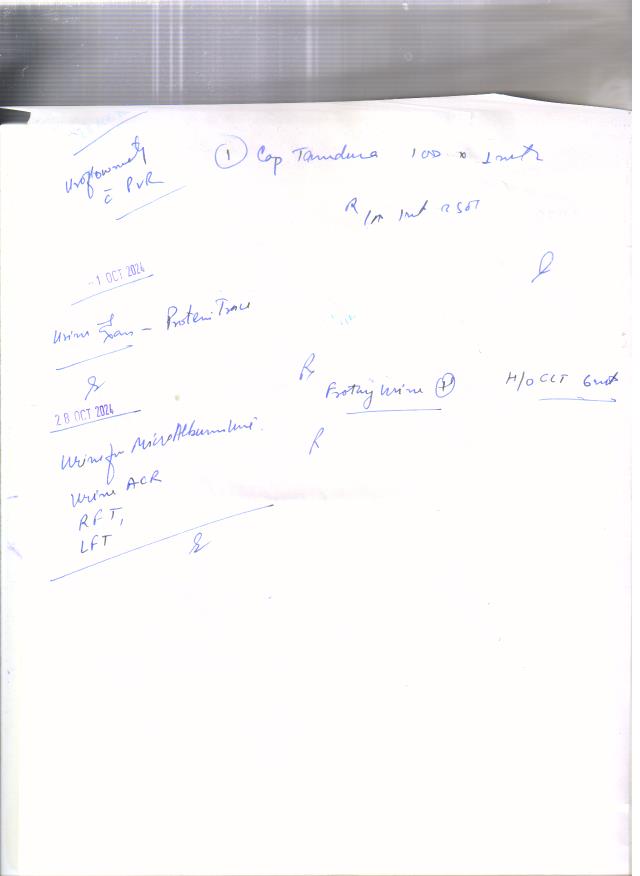 Uroflowmetry
c̄ PVR
① Cap Tamdura 1OD x 1 mth
R
- 1 OCT 2024
Urine Exam - Protein Trace
R
Frothy Urine (+)
H/O CLT 6 mth
28 OCT 2024
Urine for MicroAlbuminuria.
R
Urine ACR
RFT,
LFT